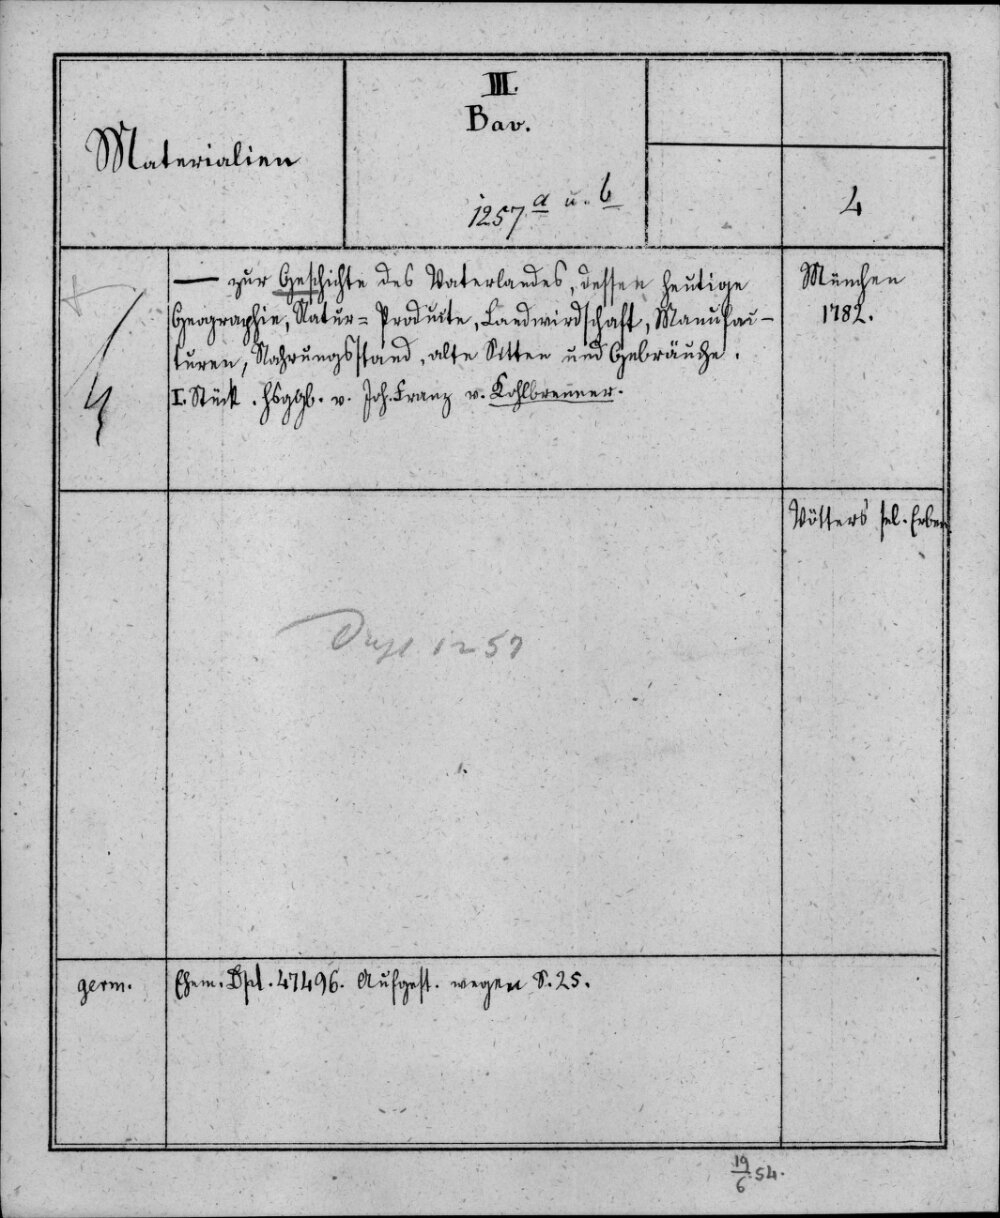 Materialien
III.
Bav.
1257 a u. b
4
— zur Geschichte des Vaterlandes, dessen heutige
Geographie, Natur= Produkte, Landwirdschaft, Manufac-
turen, Nahrungsstand, alte Sitten und Gebräuche.
I. Stück. hsggb. v. Joh. Franz v. Kohlbrenner.
München
1782.
Vötters sel. Erben
1257
germ.
Ehem. Dpl. 47496. Aufgest. wegen S. 25.
19/6 54.